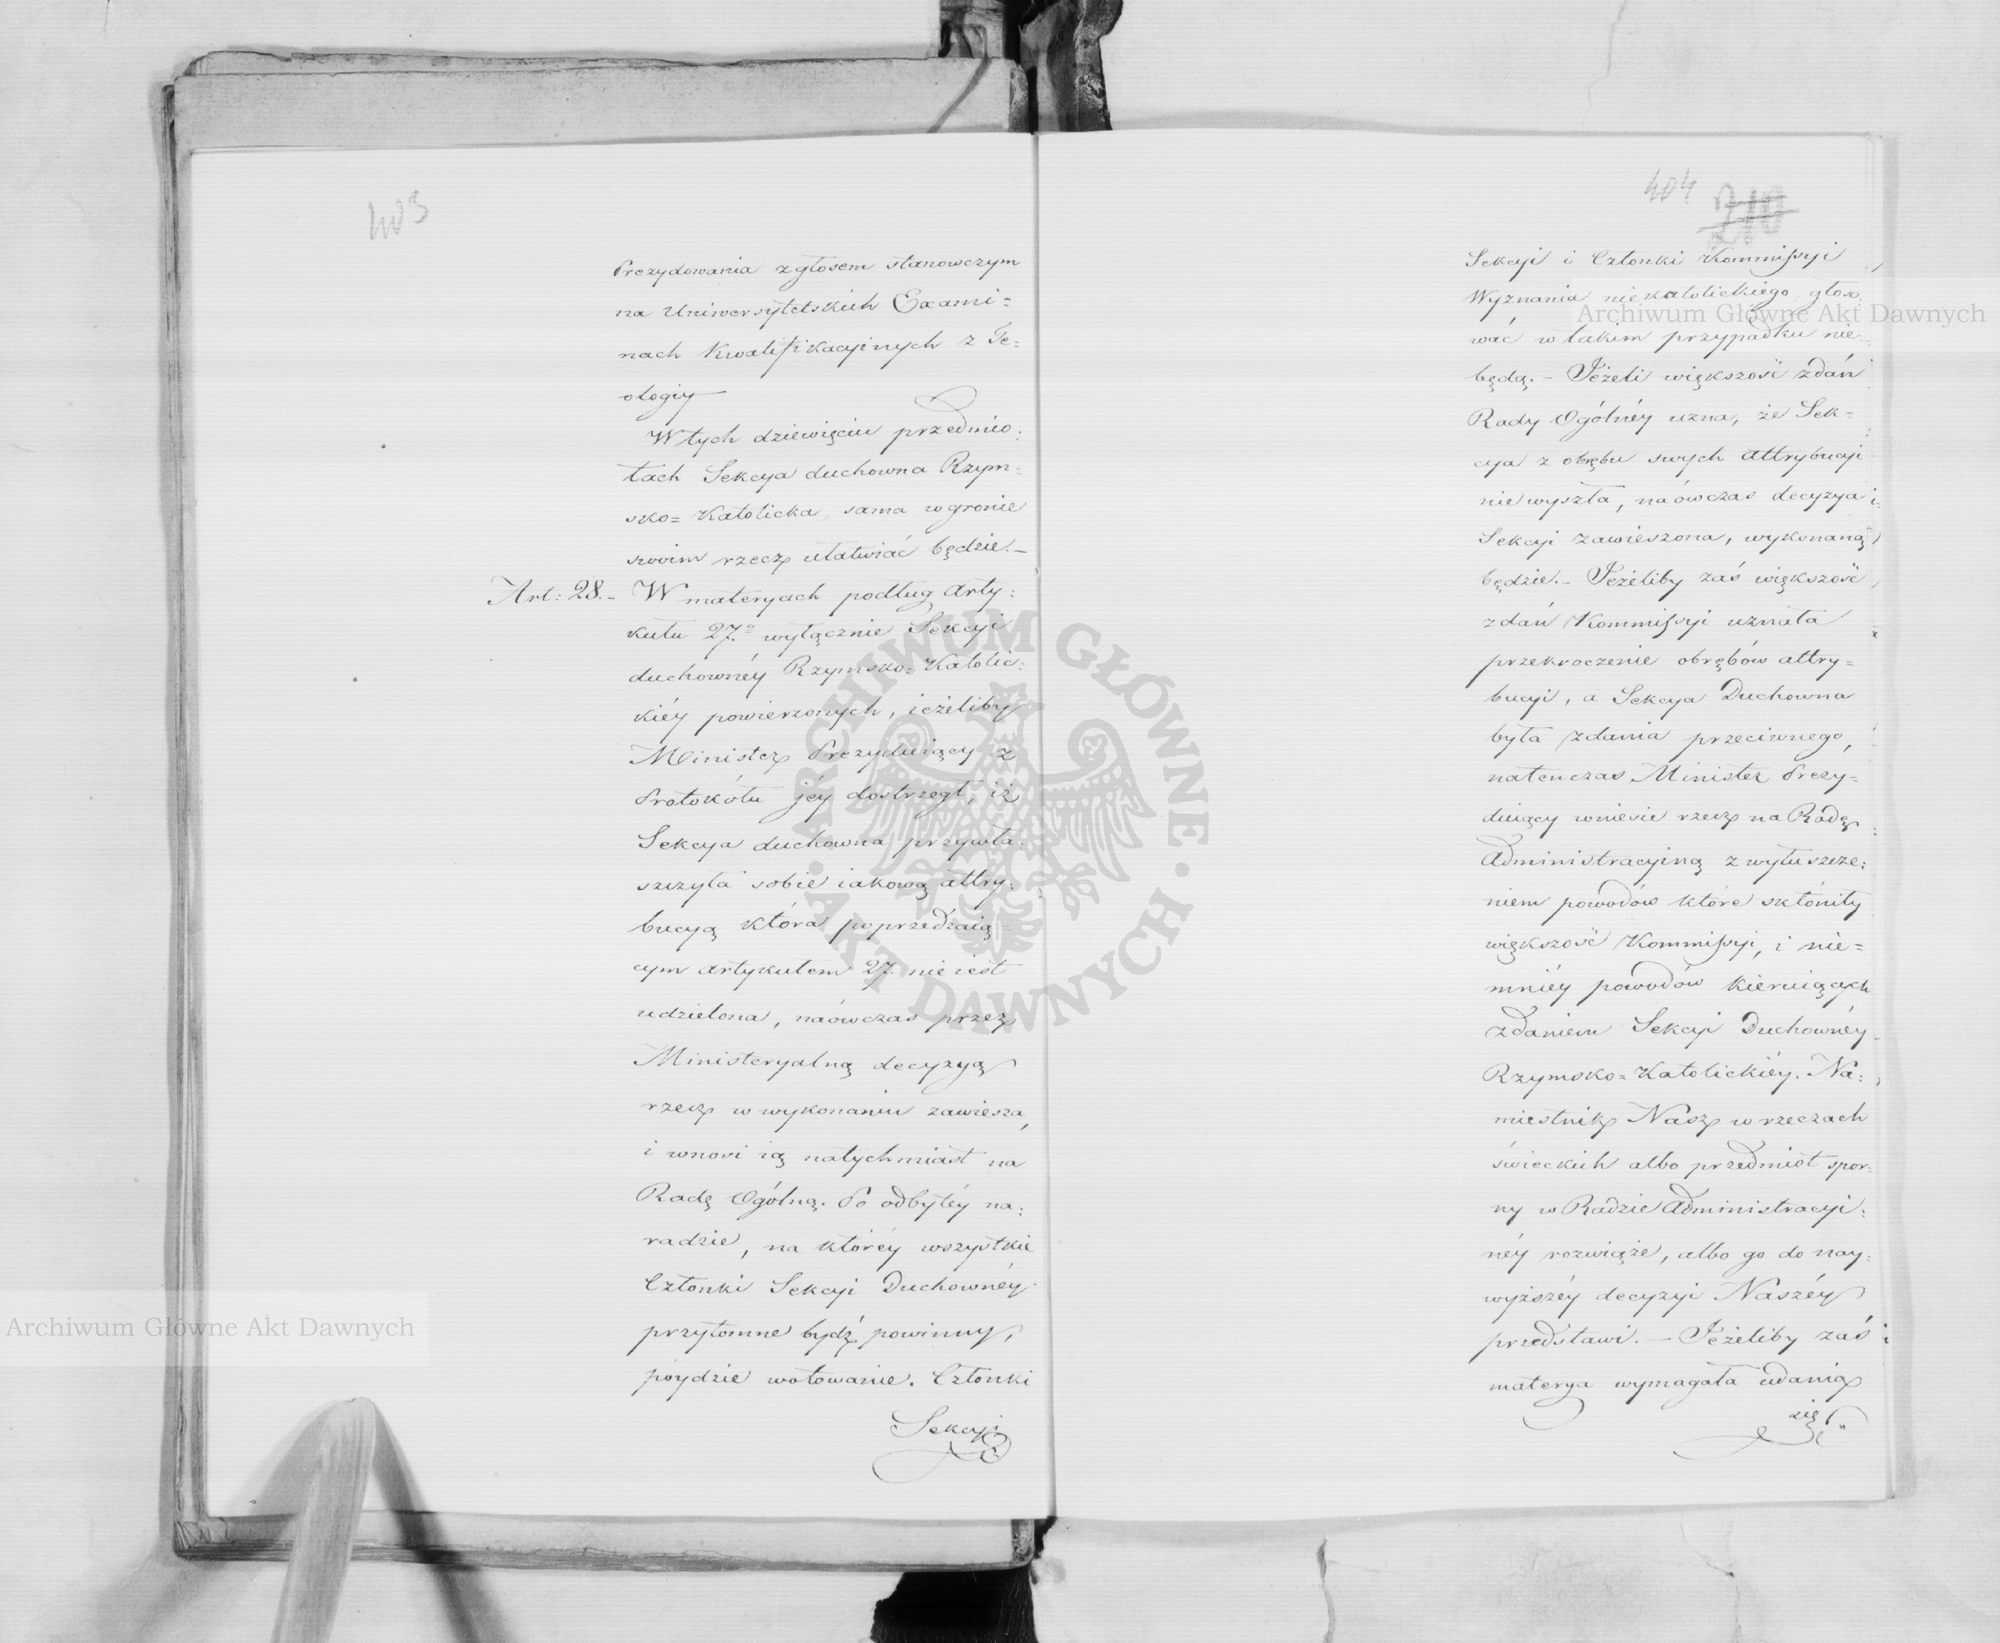 403
Prezydowania z głosem stanowczym
na Uniwersytetskich Exami=
nach Kwalifikacyinych z Te=
ologiy
W tych dziewięciu przedmio:
tach Sekcya duchowna Rzym=
sko= Katolicka, sama w gronie
swoim rzecz ułatwiać będzie.–
Art: 28.– W materyach podług Arty:
kułu 27.º wyłącznie Sekcyi
duchownéy Rzymsko= Katolic:
kiéy powierzonych, ieżeliby
Minister Prezyduiący z
Protokółu jéy dostrzegł, iż
Sekcya duchowna przywła:
szczyła sobie iakową attry:
bucyą która poprzedzaią=
cym Artykułem 27. nie iest
udzielona, naówczas przez
Ministeryalną decyzyą
rzecz w wykonaniu zawiesza,
i wnosi ią natychmiast na
Radę Ogólną. Po odbytéy na:
radzie, na któréy wszystkie
Członki Sekcyi Duchownéy
przytomne bydź powinny,
póydzie wotowanie. Członki
Sekcyi
404
210
Sekcyi i Członki Kommissyi
Wyznania niekatolickiego, głoso:
wać w takim przypadku nie=
będą.– Jeżeli większość zdań
Rady Ogólnéy uzna, że Sek=
cya z obrębu swych attrybucyi
nie wyszła, naówczas decyzya
Sekcyi zawieszona, wykonaną
będzie.– Jeżeliby zaś większość
zdań Kommissyi uznała
przekroczenie obrębów attry=
bucyi, a Sekcya Duchowna
była zdania przeciwnego,
natenczas Minister Prezy=
duiący wniesie rzecz na Radę
Administracyiną z wyłuszcze:
niem powodów które skłoniły
większość Kommissyi, i nie=
mniéy powodów kieruiących
zdaniem Sekcyi Duchownéy
Rzymsko= Katolickiéy. Na:
miestnik Nasz w rzeczach
świeckich albo przedmiot spor:
ny w Radzie Administracyi:
néy rozwiąże, albo go do nay:
wyższéy decyzyi Naszéy
przedstawi.– Jeżeliby zaś
materya wymagała udania
się
Archiwum Główne Akt Dawnych
Archiwum Główne Akt Dawnych
ARCHIWUM GŁÓWNE · AKT DAWNYCH ·